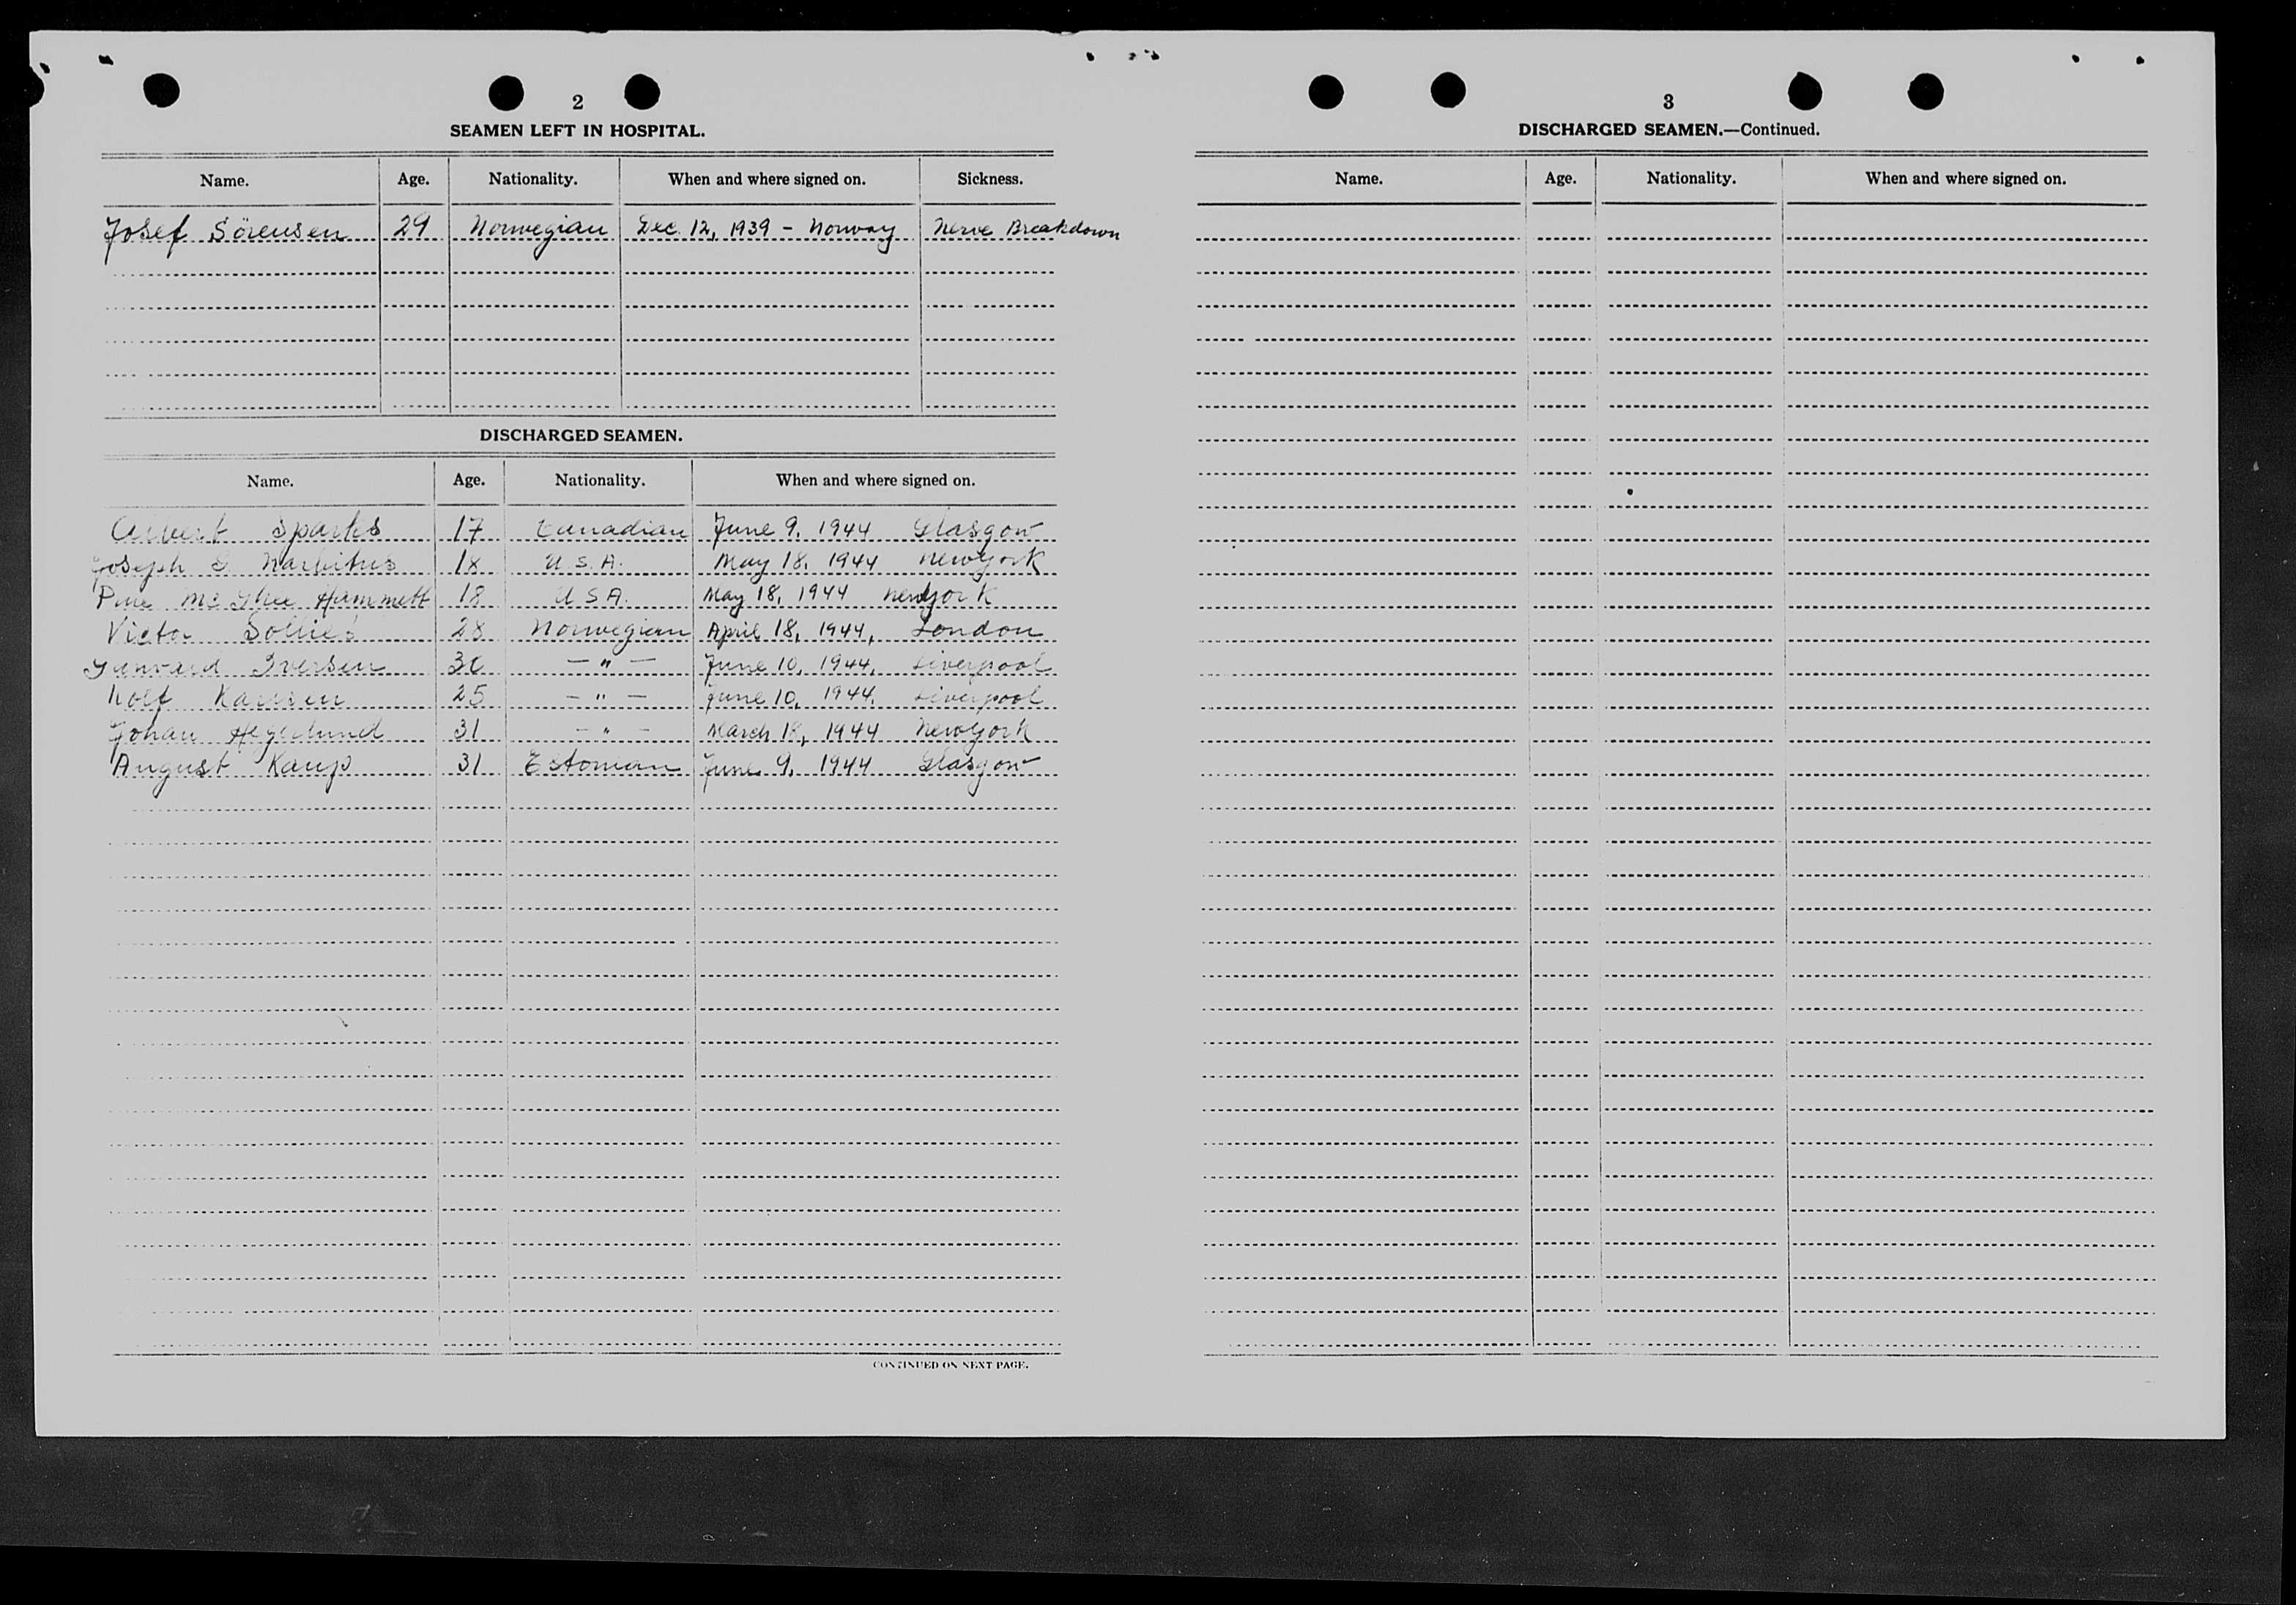 2
SEAMEN LEFT IN HOSPITAL.
Name. Age. Nationality. When and where signed on. Sickness.
Josef Sörensen 29 Norwegian Dec. 12, 1939 - Norway Nerve Breakdown
DISCHARGED SEAMEN.
Name. Age. Nationality. When and where signed on.
Albert Sparks 17 Canadian June 9, 1944 Glasgow
Joseph 18 U.S.A. May 18, 1944 New York
Mc Ghee Hammett 18 U S A. May 18, 1944 New York
Victor 28 Norwegian April 18, 1944, London
Gunvald Iversen 30 - " - June 10, 1944, Liverpool
Rolf Karlsen 25 - " - June 10, 1944, Liverpool
Johan Hegerlund 31 - " - March 18, 1944 New York
August Kaup 31 Estonian June 9, 1944 Glasgow
CONTINUED ON NEXT PAGE.
3
DISCHARGED SEAMEN.—Continued.
Name. Age. Nationality. When and where signed on.